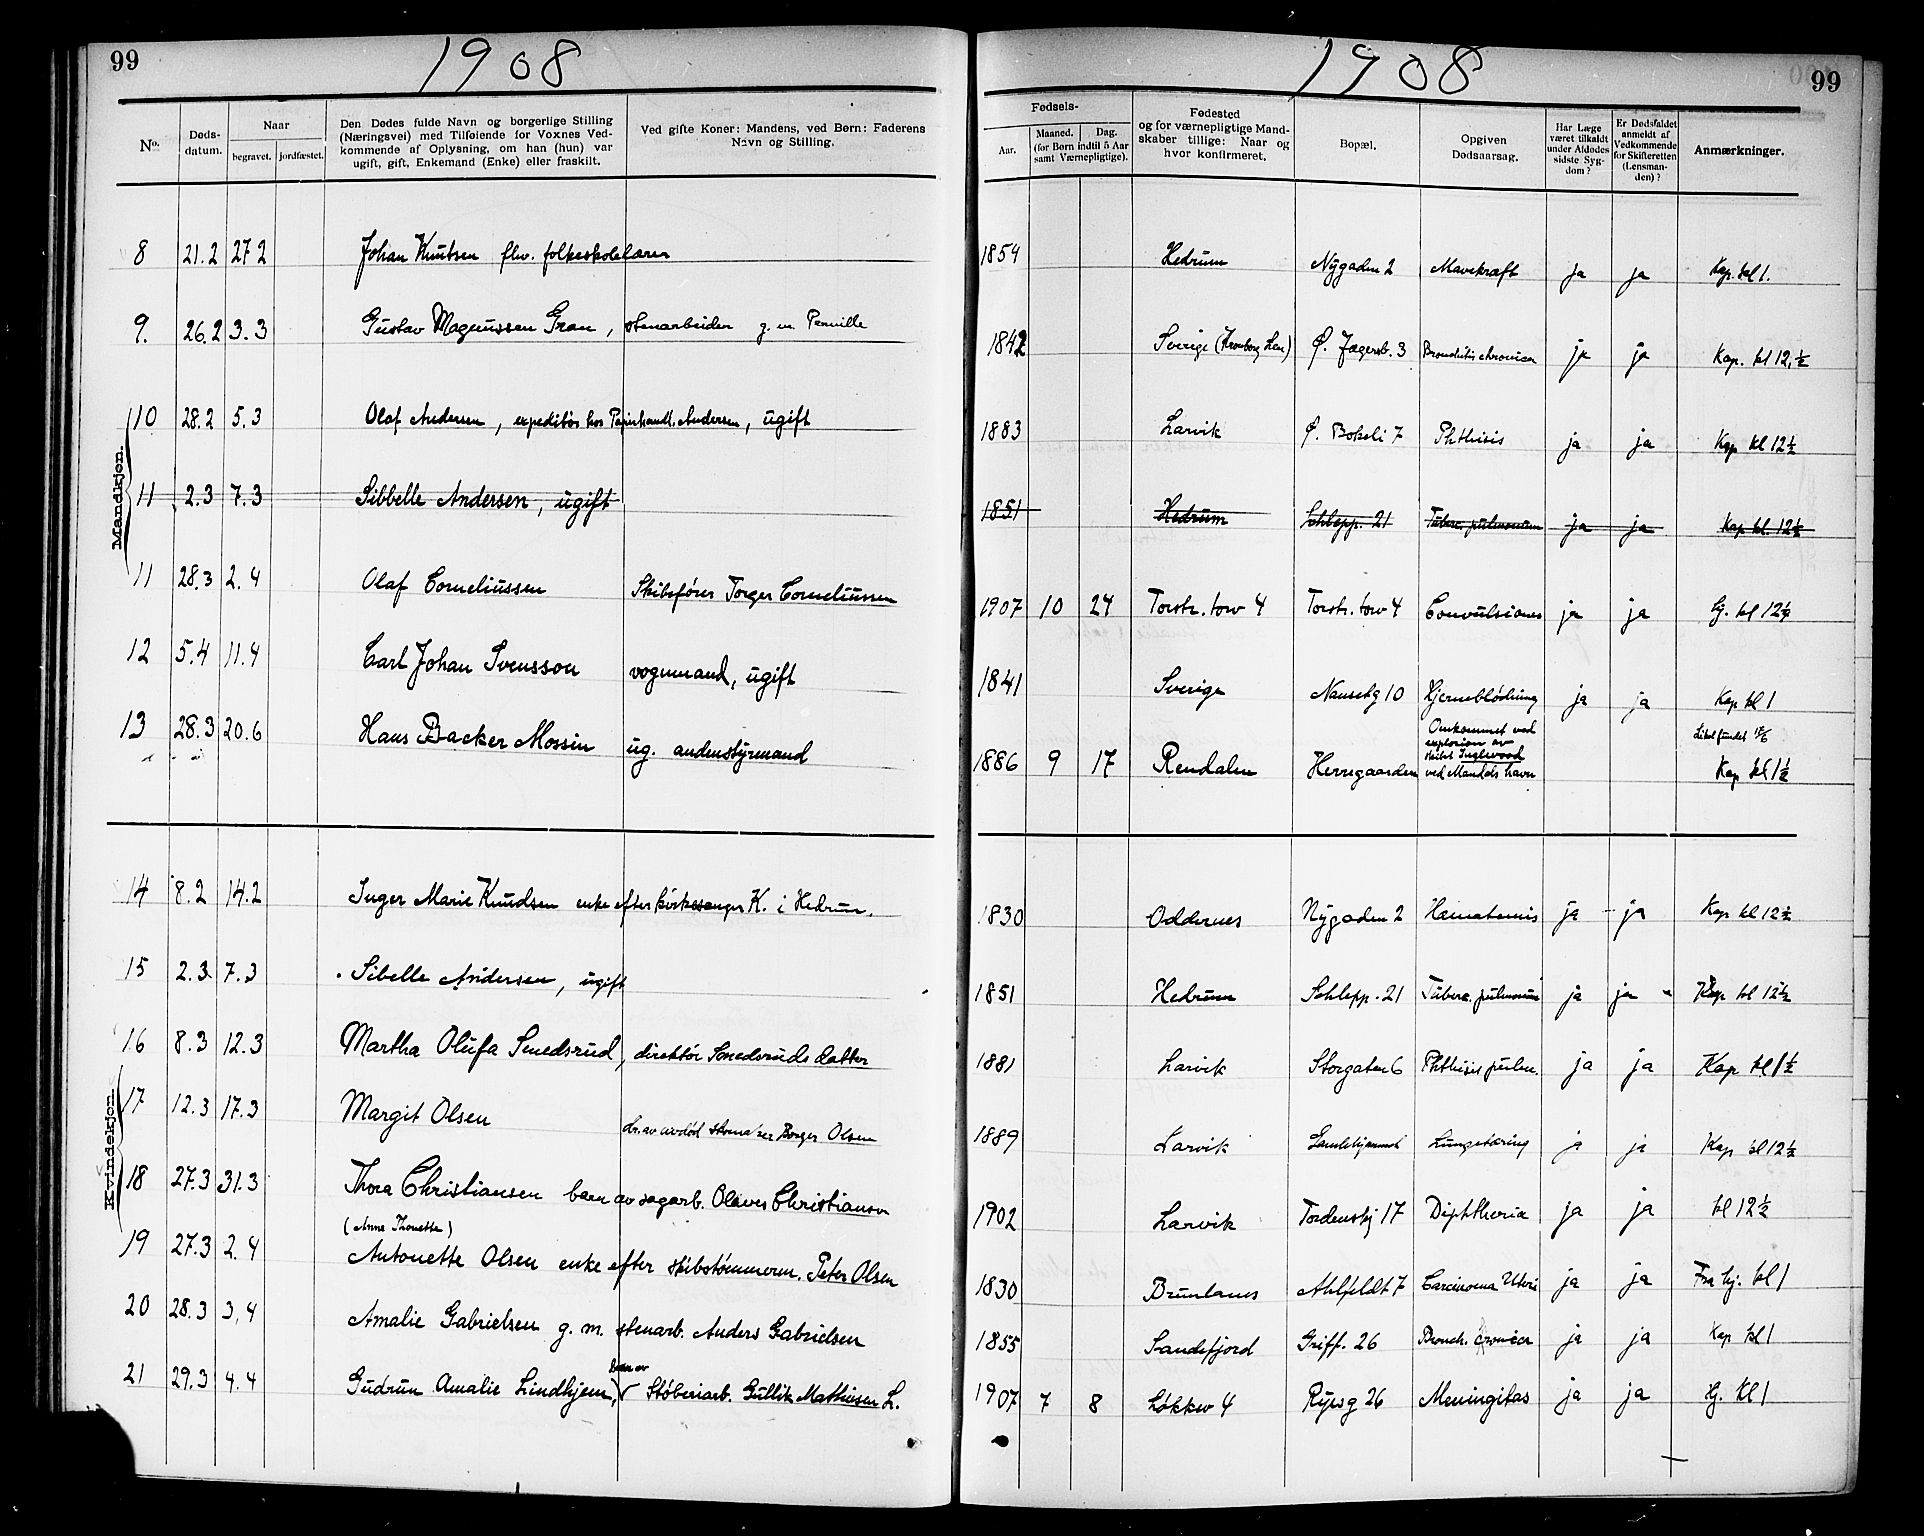 99
1908
1908
99
No.
Døds-
datum.
Naar
begravet. jordfæstet.
Den Dødes fulde Navn og borgerlige Stilling
(Næringsvei) med Tilføiende for Voxnes Ved-
kommende af Oplysning, om han (hun) var
ugift, gift, Enkemand (Enke) eller fraskilt.
Ved gifte Koner: Mandens, ved Børn: Faderens
Navn og Stilling.
Fødsels-
Aar.
Maaned. Dag.
(for Børn indtil 5 Aar
samt Værnepligtige).
Fødested
og for værnepligtige Mand-
skaber tillige: Naar og
hvor konfirmeret.
Bopæl.
Opgiven
Dødsaarsag.
Har Læge
været tilkaldt
under Afdødes
sidste Syg-
dom?
Er Dødsfaldet
anmeldt af
Vedkommende
for Skifteretten
(Lensman-
den)?
Anmærkninger.
Mandkjøn.
8 21.2 27 2 Johan Knutsen fhv. folkeskolelærer 1854 Hedrum Nygaden 2 Mavekræft ja ja Kap. kl 1.
9. 26.2 3.3 Gustav Magnussen Gran, stenarbeider g. m. Pernille 1842 Sverige (Kronborg Len) Ø. Jægersb. 3 Bronchitis chronica ja ja Kap. kl 12½
10 28.2 5.3 Olaf Andersen, expeditør hos Papirhandl. Andersen, ugift 1883 Larvik Ø. Bokeli 7 Phthisis ja ja Kap kl 12½
11 2.3 7.3 Sibbelle Andersen, ugift 1851 Hedrum Schlepp. 21 Tuberc. pulmonum ja ja Kap kl. 12½
11 28.3 2.4 Olaf Corneliussen Skibsfører Torger Corneliussen 1907 10 24 Torstr. torv 4 Torstr. torv 4 Convulsioner ja ja Hj. kl 12½
12 5.4 11.4 Carl Johan Svensson vognmand, ugift 1841 Sverige Nansetg 10 Hjerneblødning ja ja Kap kl 1
13 28.3 20.6 Hans Backer Mossin ug. andenstyrmand 1886 9 17 Rendalen Herregaarden Omkommet ved
explosion av
skibet Inglewood
ved Mandals havn
Liket fundet 12/6
Kap kl 1½
Kvindekjøn.
14 8.2 14.2 Inger Marie Knudsen enke efter kirkesanger K. i Hedrum. 1830 Oddernes Nygaden 2 Hæmatemis ja ja Kap kl 12½
15 2.3 7.3 Sibelle Andersen, ugift 1851 Hedrum Schlepp. 21 Tuberc. pulmonum ja ja Kap kl 12½
16 8.3 12.3 Martha Olufa Smedsrud, direktør Smedsruds datter 1881 Larvik Storgaten 6 Phthisis pulm. ja ja Kap kl 1½
17 12.3 17.3 Margit Olsen dr. av avdød skomaker Borger Olsen 1889 Larvik Lungetæring ja ja Kap kl 12½
18 27.3 31.3 Thora Christiansen barn av sagarb. Olaves Christiansen 1902 Larvik Tordenskj 17 Diphtheria ja ja kl 12½
(Anne Thonette)
19 27.3 2.4 Antonette Olsen enke efter skibstømmerm. Peter Olsen 1830 Brunlanes Ahlfeldt 7 Carcinoma Uteri ja ja Fra hj. kl 1
20 28.3 3,4 Amalie Gabrielsen g. m. stenarb. Anders Gabrielsen 1855 Sandefjord Griff. 26 Bronch. cronica ja ja Kap kl 1
barn av
21 29.3 4.4 Gudrun Amalie Lindhjem, Støberiarb. Gullik Mathisen L. 1907 7 8 Løkkev 4 Rypsg 26 Meningitas ja ja Hj. Kl 1